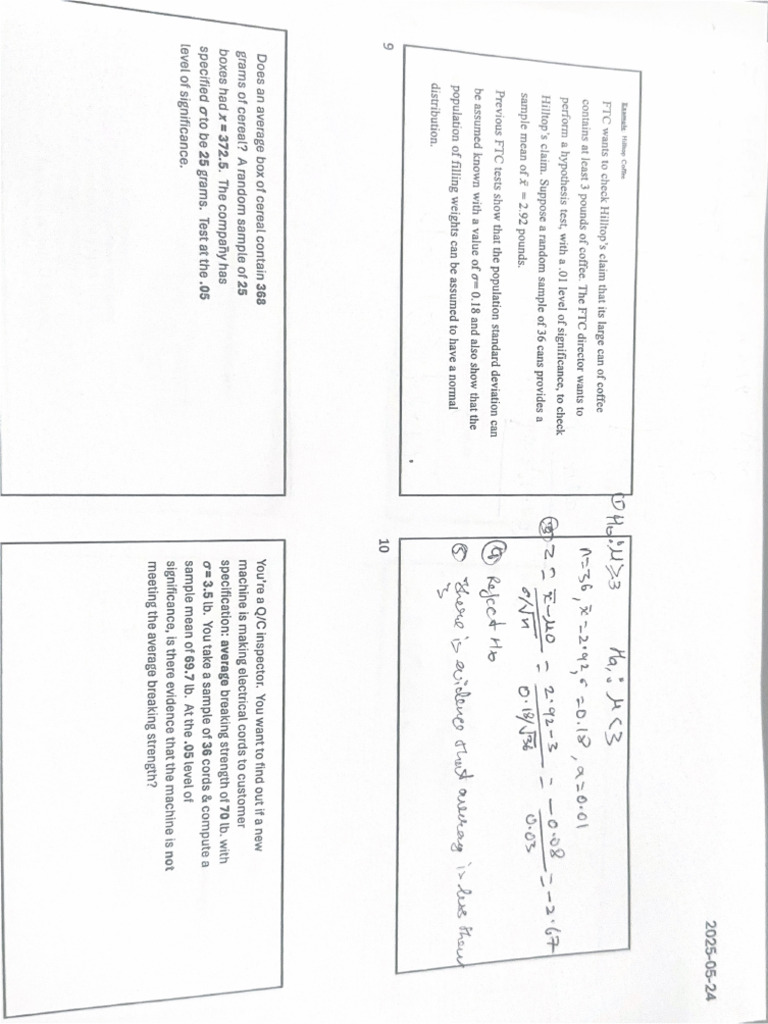 2025-05-24
Example: Hilltop Coffee
FTC wants to check Hilltop's claim that its large can of coffee
contains at least 3 pounds of coffee. The FTC director wants to
perform a hypothesis test, with a .01 level of significance, to check
Hilltop's claim. Suppose a random sample of 36 cans provides a
sample mean of x̄ = 2.92 pounds.
Previous FTC tests show that the population standard deviation can
be assumed known with a value of σ= 0.18 and also show that the
population of filling weights can be assumed to have a normal
distribution.
9
① H₀: μ≥3 Hₐ: μ<3
n=36, x̄=2.92, σ=0.18, α=0.01
Z = x̄-μ0 / σ/√n = 2.92-3 / 0.18/√36 = -0.08 / 0.03 = -2.67
④ Reject H₀
⑤ There is evidence that average is less than
3
10
Does an average box of cereal contain 368
grams of cereal? A random sample of 25
boxes had x = 372.5. The company has
specified σ to be 25 grams. Test at the .05
level of significance.
You're a Q/C inspector. You want to find out if a new
machine is making electrical cords to customer
specification: average breaking strength of 70 lb. with
σ = 3.5 lb. You take a sample of 36 cords & compute a
sample mean of 69.7 lb. At the .05 level of
significance, is there evidence that the machine is not
meeting the average breaking strength?